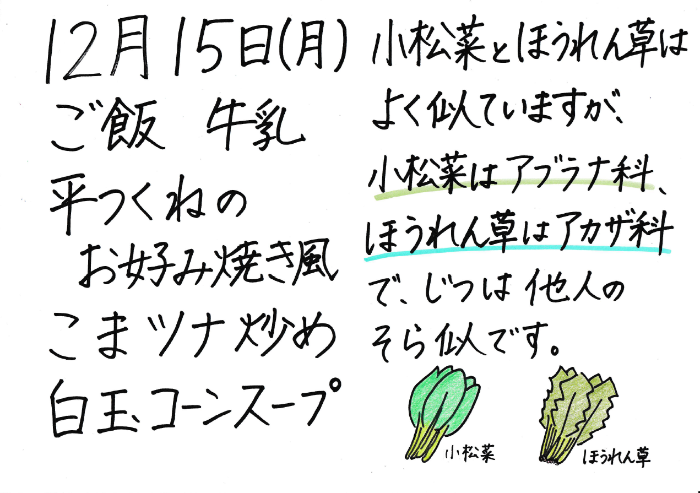 12月15日(月)
ご飯 牛乳
平つくねの
お好み焼き風
こまツナ炒め
白玉コーンスープ
小松菜とほうれん草は
よく似ていますが、
小松菜はアブラナ科、
ほうれん草はアカザ科
で、じつは他人の
そら似です。
小松菜
ほうれん草